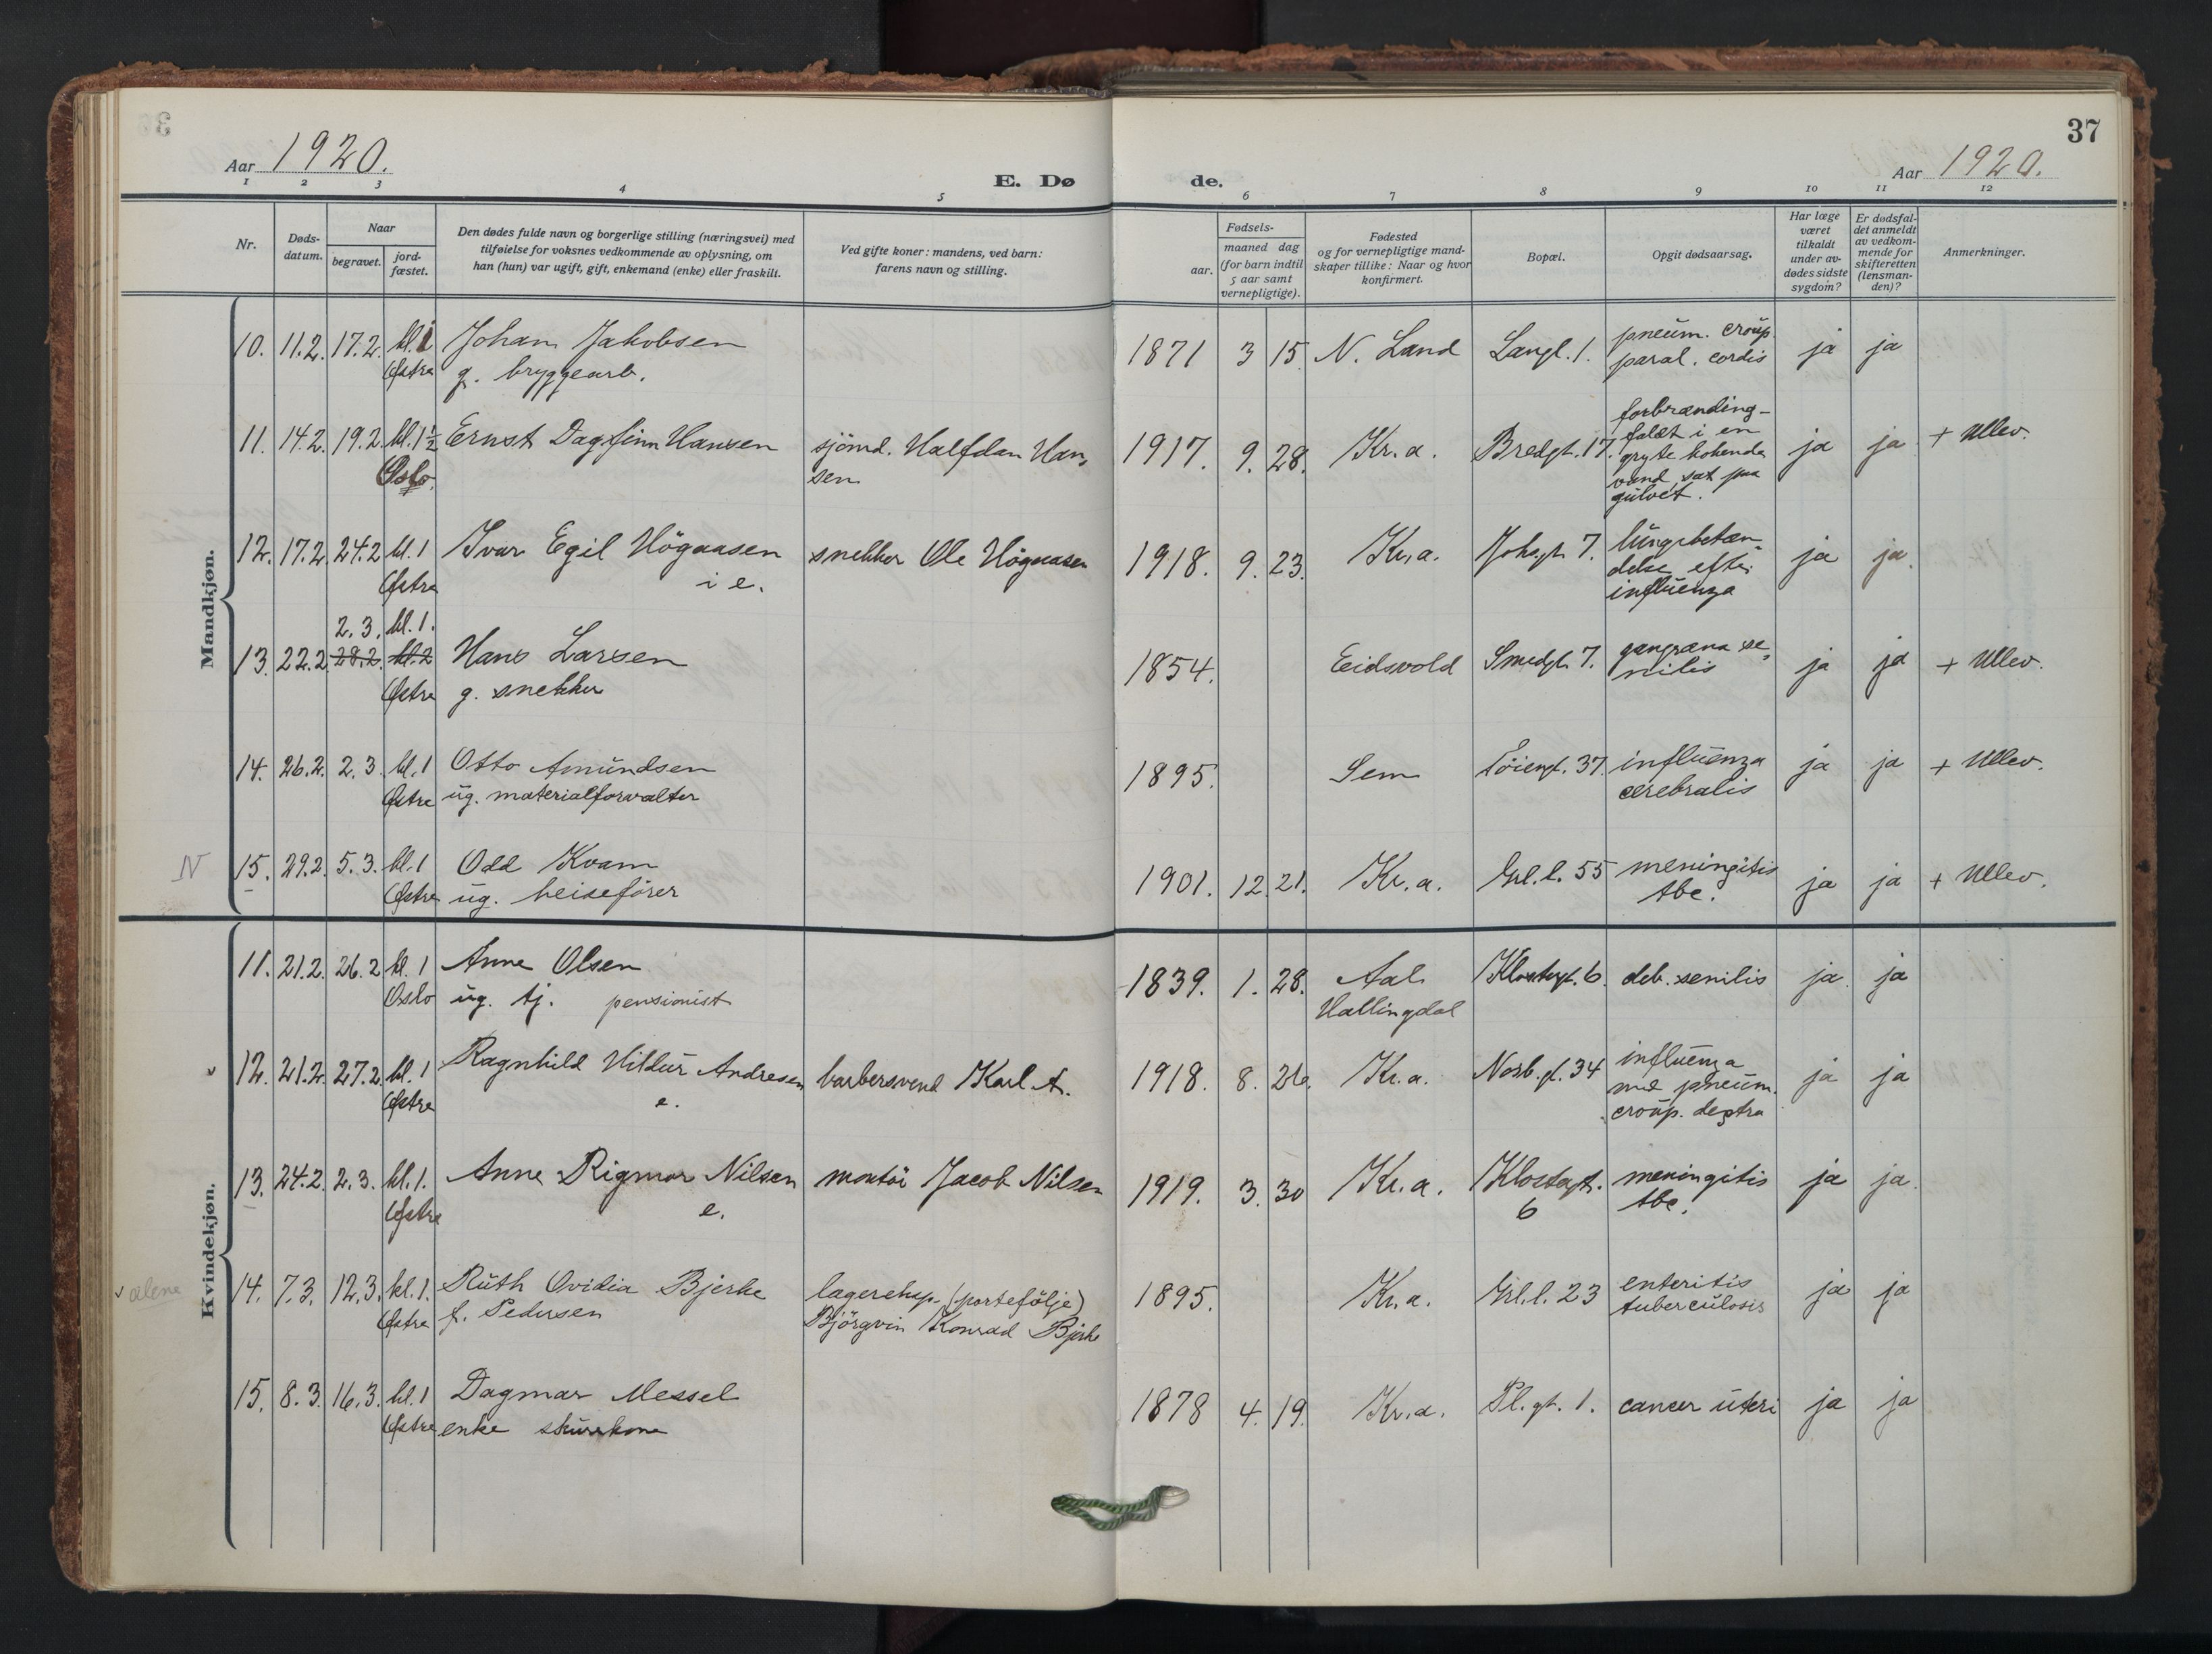 Aar 1920.
E. Dø de.
37
Aar 1920.
1 2 3 4 5 6 7 8 9 10 11 12
Nr.
Døds-
datum.
Naar
begravet.
jord-
fæstet.
Den dødes fulde navn og borgerlige stilling (næringsvei) med
tilføielse for voksnes vedkommende av oplysning, om
han (hun) var ugift, gift, enkemand (enke) eller fraskilt.
Ved gifte koner: mandens, ved barn:
farens navn og stilling.
Fødsels-
aar.
maaned dag
(for barn indtil
5 aar samt
vernepligtige).
Fødested
og for vernepligtige mand-
skaper tillike: Naar og hvor
konfirmert.
Bopæl.
Opgit dødsaarsag.
Har læge
været
tilkaldt
under av-
dødes sidste
sygdom?
Er dødsfal-
det anmeldt
av vedkom-
mende for
skifteretten
(lensman-
den)?
Anmerkninger.
Mandkjøn.
10. 11.2. 17.2. kl. 1 Johan Jakobsen 1871 3 15 N. Land Langl. 1. pneum. croup. ja ja
Østre g. bryggearb. paral. cordis
11. 14.2. 19.2. kl. 1½ Ernst Dagfinn Hansen sjömd. Halfdan Han- 1917. 9. 28. Kr.a. Bredgt. 17. forbrænding- ja ja + Ullev.
Oslo. sen faldt i en
gryte kokende
vand, sat paa
gulvet.
12. 17.2. 24.2 kl. 1 Ivar Egil Högaasen snekker Ole Högaasen 1918. 9. 23. Kr.a. Johs.gt. 7. lungebetæn- ja ja.
Østre i e. delse efter
influenza
2.3. kl. 1.
13. 22.2. 28.2. kl. 2 Hans Larsen 1854. Eidsvold Smedgt. 7. gangræna se- ja ja + Ullev.
Østre g. snekker nilis
14. 26.2. 2.3. kl. 1 Otto Amundsen 1895. Sem Töiengt. 37. influenza ja ja + Ullev.
Østre ug. materialforvalter cerebralis
N 15. 29.2. 5.3. kl. 1 Odd Kvam 1901. 12. 21. Kr.a. Grl.l. 55 meningitis ja ja + Ullev.
Østre ug. heisefører tbc.
Kvindekjøn.
11. 21.2. 26.2 kl. 1 Anne Olsen 1839. 1. 28. Aal Klostergt. 6. deb. senilis ja. ja
Oslo ug. tj. pensionist Hallingdal
12. 21.2. 27.2. kl. 1 Ragnhild Hildur Andresen barbersvend Karl A. 1918. 8. 26. Kr.a. Norb.gt. 34 influenza ja ja
Østre e. med pneum.
croup. dextra
13. 24.2. 2.3. kl. 1. Anne Rigmor Nilsen montör Jacob Nilsen 1919. 3. 30 Kr.a. Klostergt. meningitis ja ja.
Østre e. 6 tbc.
v alene 14. 7.3. 12.3. kl. 1. Ruth Ovidia Bjerke lagereksp. (portefölje) 1895. Kr.a. Grl.l. 23 enteritis ja ja
Østre f. Pedersen Björgvin Konrad Bjerke tuberculosis
15. 8.3. 16.3. kl. 1 Dagmar Messel 1878 4. 19. Kr.a. Pl.gt. 1. cancer uteri ja ja
Østre enke skurekone